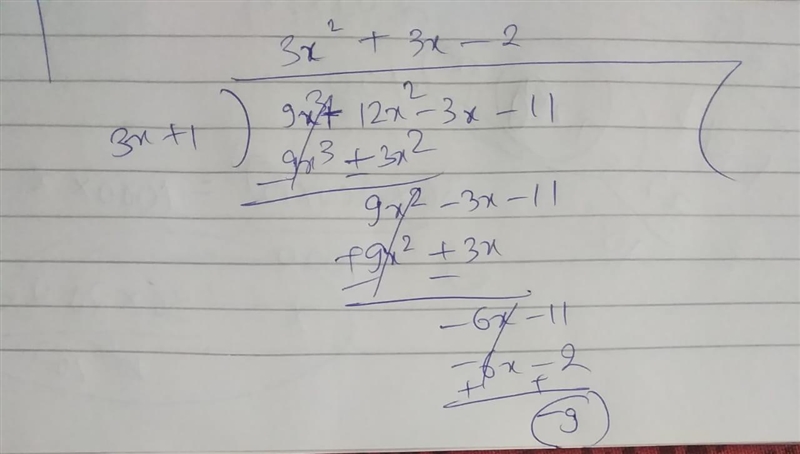 3x² + 3x - 2
3x+1 ) 9x³+ 12x² - 3x - 11 (
9x³ + 3x²
- -
9x² - 3x - 11
+9x² + 3x
- -
-6x - 11
-6x - 2
+ +
-9